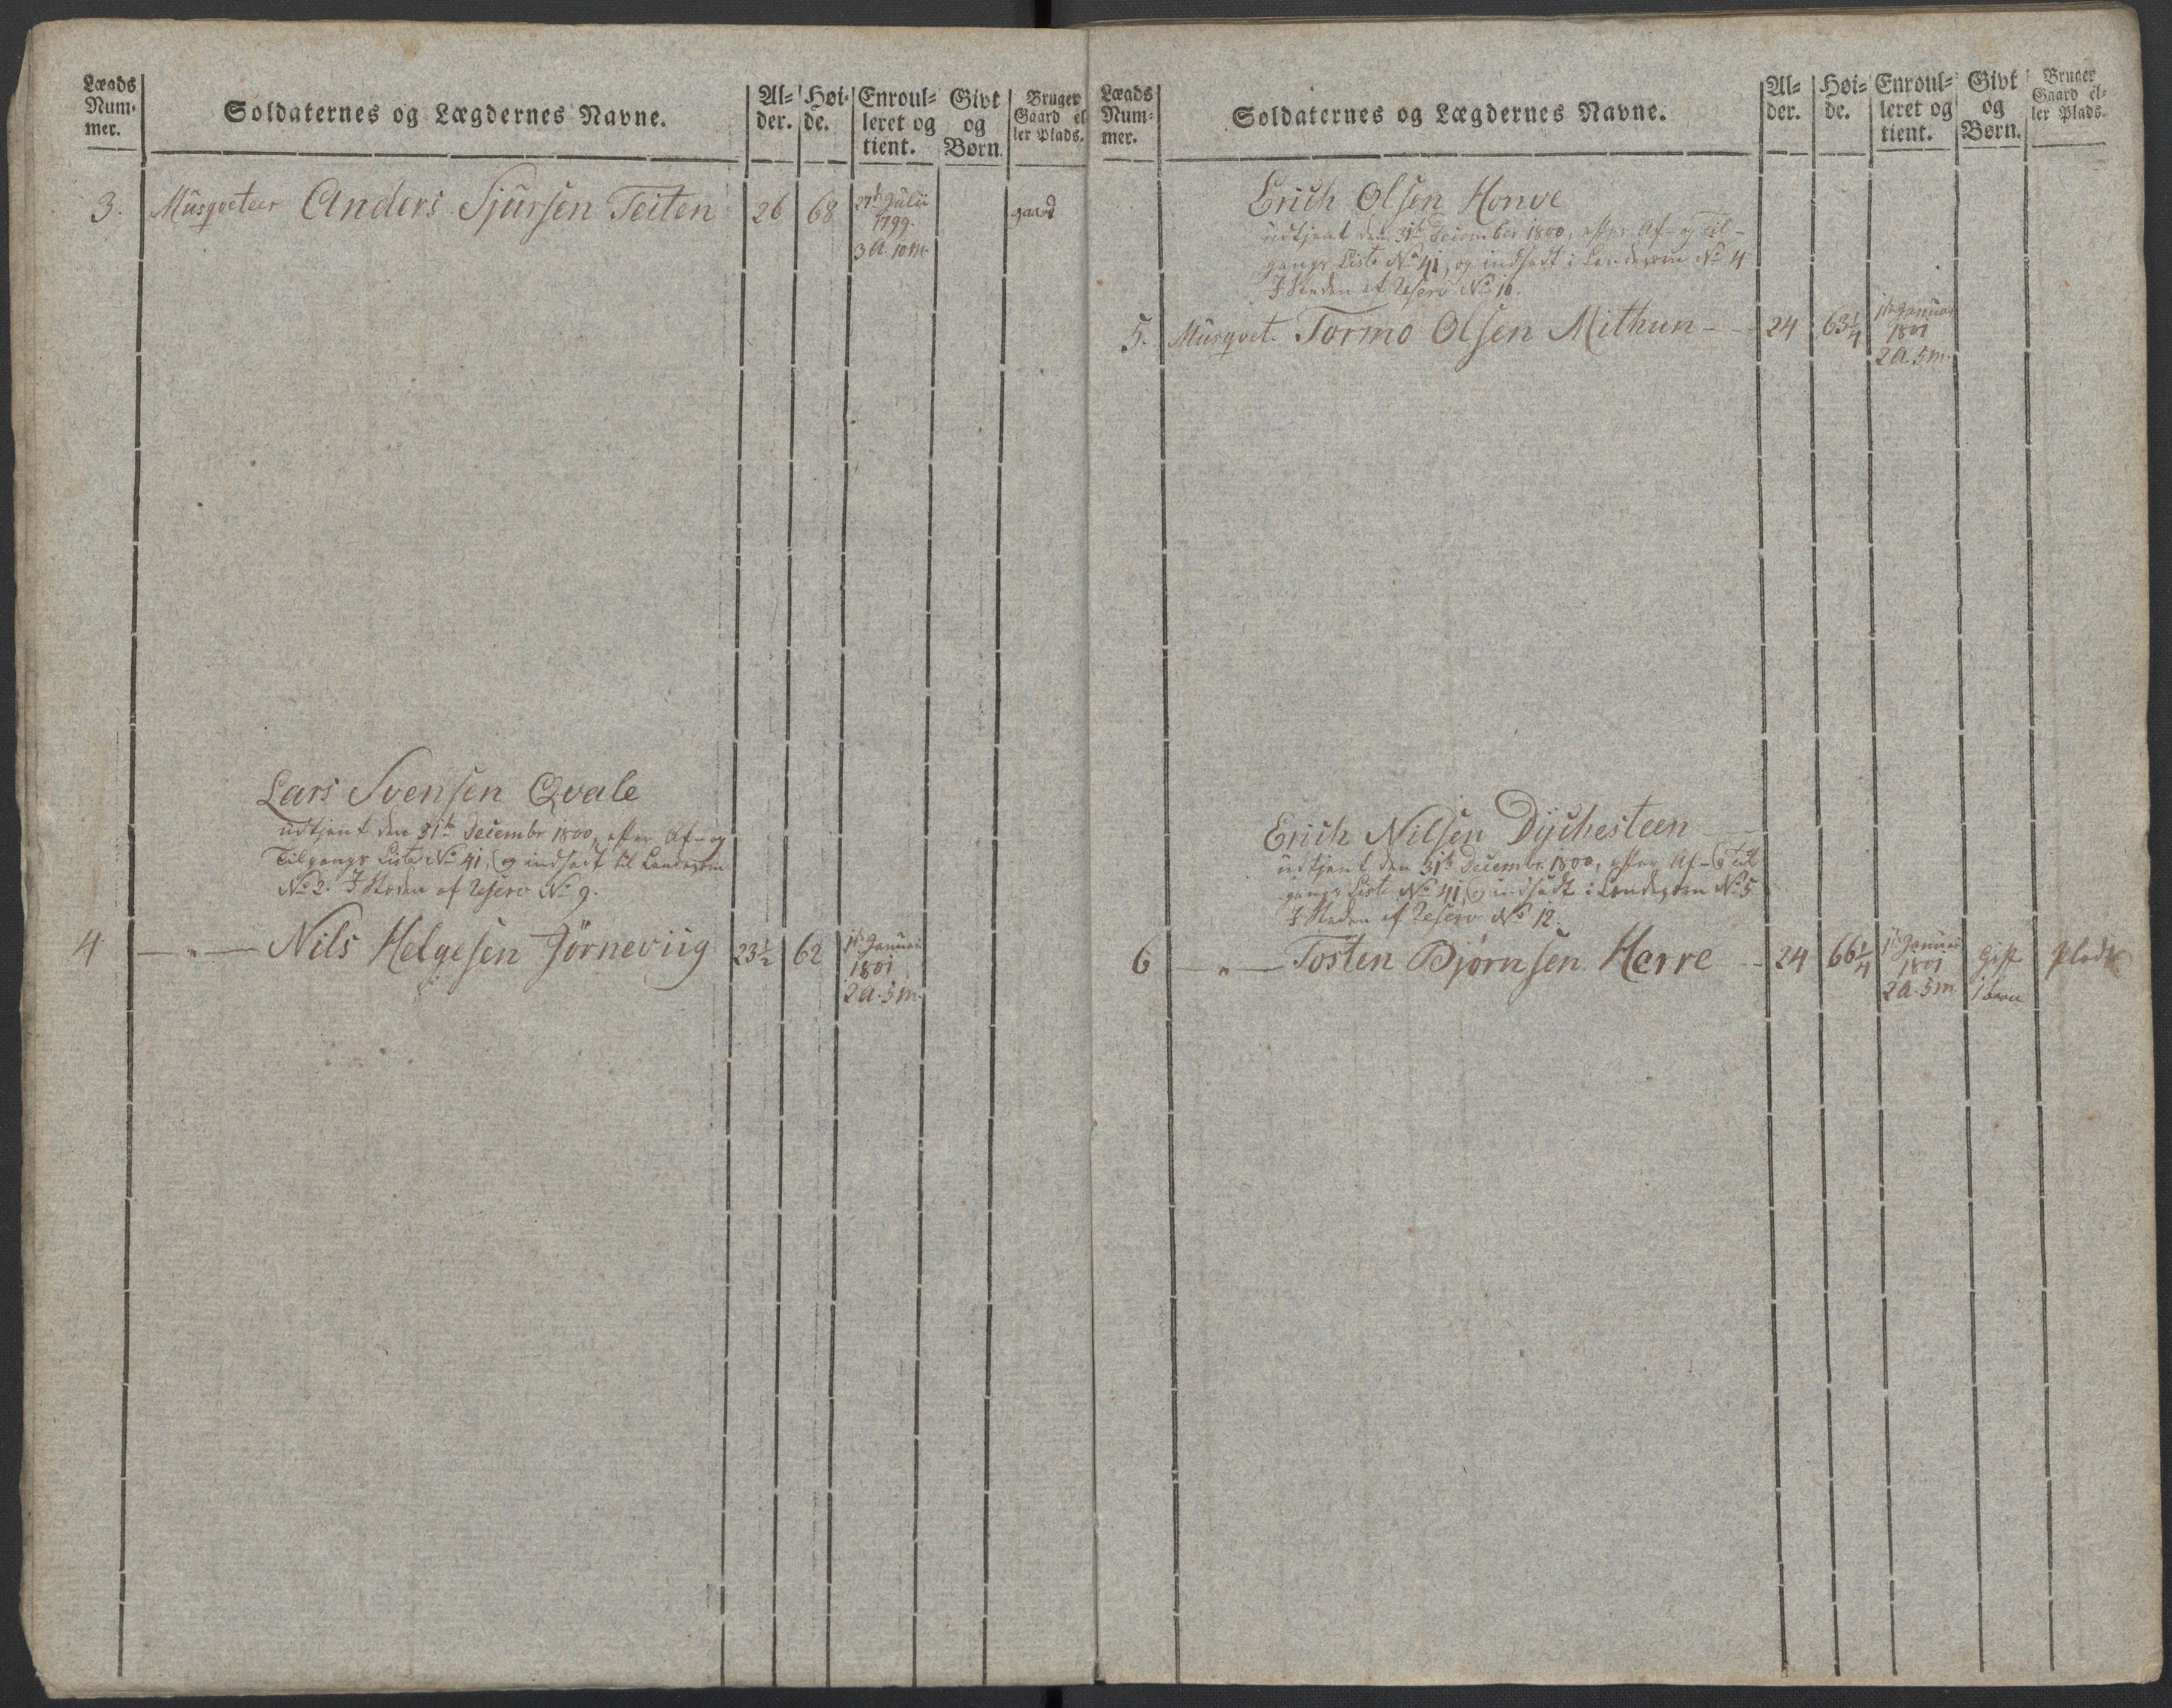 Lægds Num- mer. Soldaternes og Lægdernes Navne. Al- der. Høi- de. Enroul- leret og tient. Givt og Børn. Bruger Gaard el- ler Plads.
3. Musqveteer Anders Sjursen Teiten 26 68 27de Julii gaard
1799.
3 A. 10 M.
Lars Svensen Qvale
udtjent den 31te Decembr 1800, efter Af- og
Tilgangs Liste No 41, og indsadt til Landevern
No 2. I Steden af Reserv No 9.
4 — " — Nils Helgesen Jörneviig 23½ 62 1te Januar
1801
2 A. 5 M.
Lægds Num- mer. Soldaternes og Lægdernes Navne. Al- der. Høi- de. Enroul- leret og tient. Givt og Børn. Bruger Gaard el- ler Plads.
Erich Olsen Honve
udtjent den 31te December 1800, efter Af- og Til-
gangs Liste No 41, og indsadt i Landevern No 4
I Steden af Reserv No 10.
5. Musqvet. Tormo Olsen Mithun - - 24 63¼ 1te Januar
1801
2 A. 5 M.
Erich Nilsen Dychesteen
udtjent den 31te Decembr. 1800, efter Af- og Til
gangs Liste No 41, og indsadt i Landevern No 5
I Steden af Reserv No 12.
6 — " — Tosten Bjørnsen Herre - 24 66¼ 1te Januar Gift Plads
1801
2 A. 5 M. 1 barn